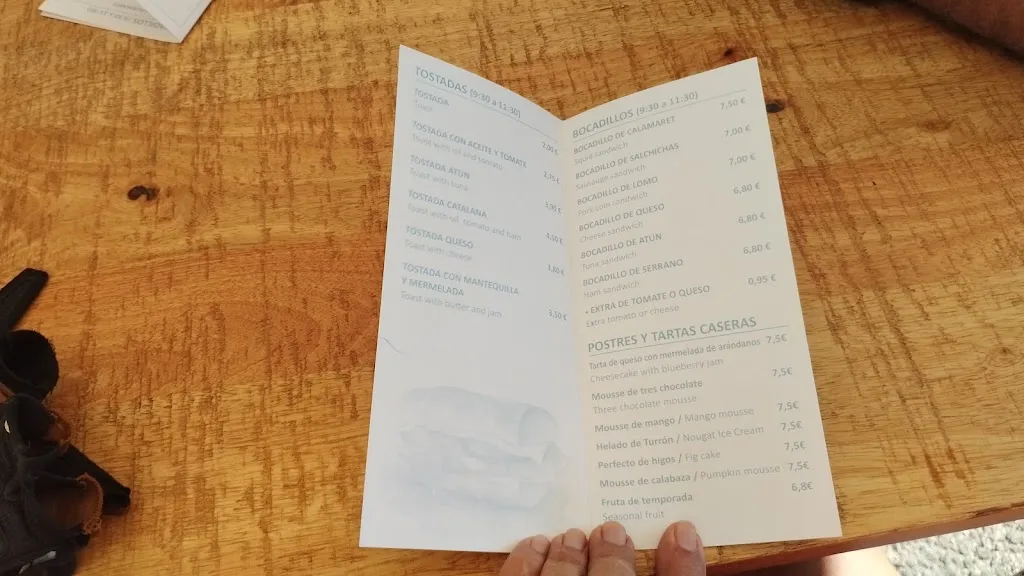 TOSTADAS (9:30 a 11:30)
TOSTADA
Toast 2,00 €
TOSTADA CON ACEITE Y TOMATE
Toast with oil and tomato
TOSTADA ATÚN
Toast with tuna
TOSTADA CATALANA
Toast with oil, tomato and ham
TOSTADA QUESO
Toast with cheese
TOSTADA CON MANTEQUILLA
Y MERMELADA
Toast with butter and jam 3,50 €
BOCADILLOS (9:30 a 11:30)
BOCADILLO DE CALAMARET 7,50 €
Squid sandwich
BOCADILLO DE SALCHICHAS 7,00 €
Sausage sandwich
BOCADILLO DE LOMO 7,00 €
Pork loin sandwich
BOCADILLO DE QUESO 6,80 €
Cheese sandwich
BOCADILLO DE ATÚN 6,80 €
Tuna sandwich
BOCADILLO DE SERRANO 6,80 €
Ham sandwich
+ EXTRA DE TOMATE O QUESO 0,95 €
Extra tomato or cheese
POSTRES Y TARTAS CASERAS
Tarta de queso con mermelada de arándanos 7,5€
Cheesecake with blueberry jam
Mousse de tres chocolate 7,5€
Three chocolate mousse
Mousse de mango / Mango mousse 7,5€
Helado de Turrón / Nougat Ice Cream 7,5€
Perfecto de higos / Fig cake 7,5€
Mousse de calabaza / Pumpkin mousse 7,5€
Fruta de temporada 6,8€
Seasonal fruit